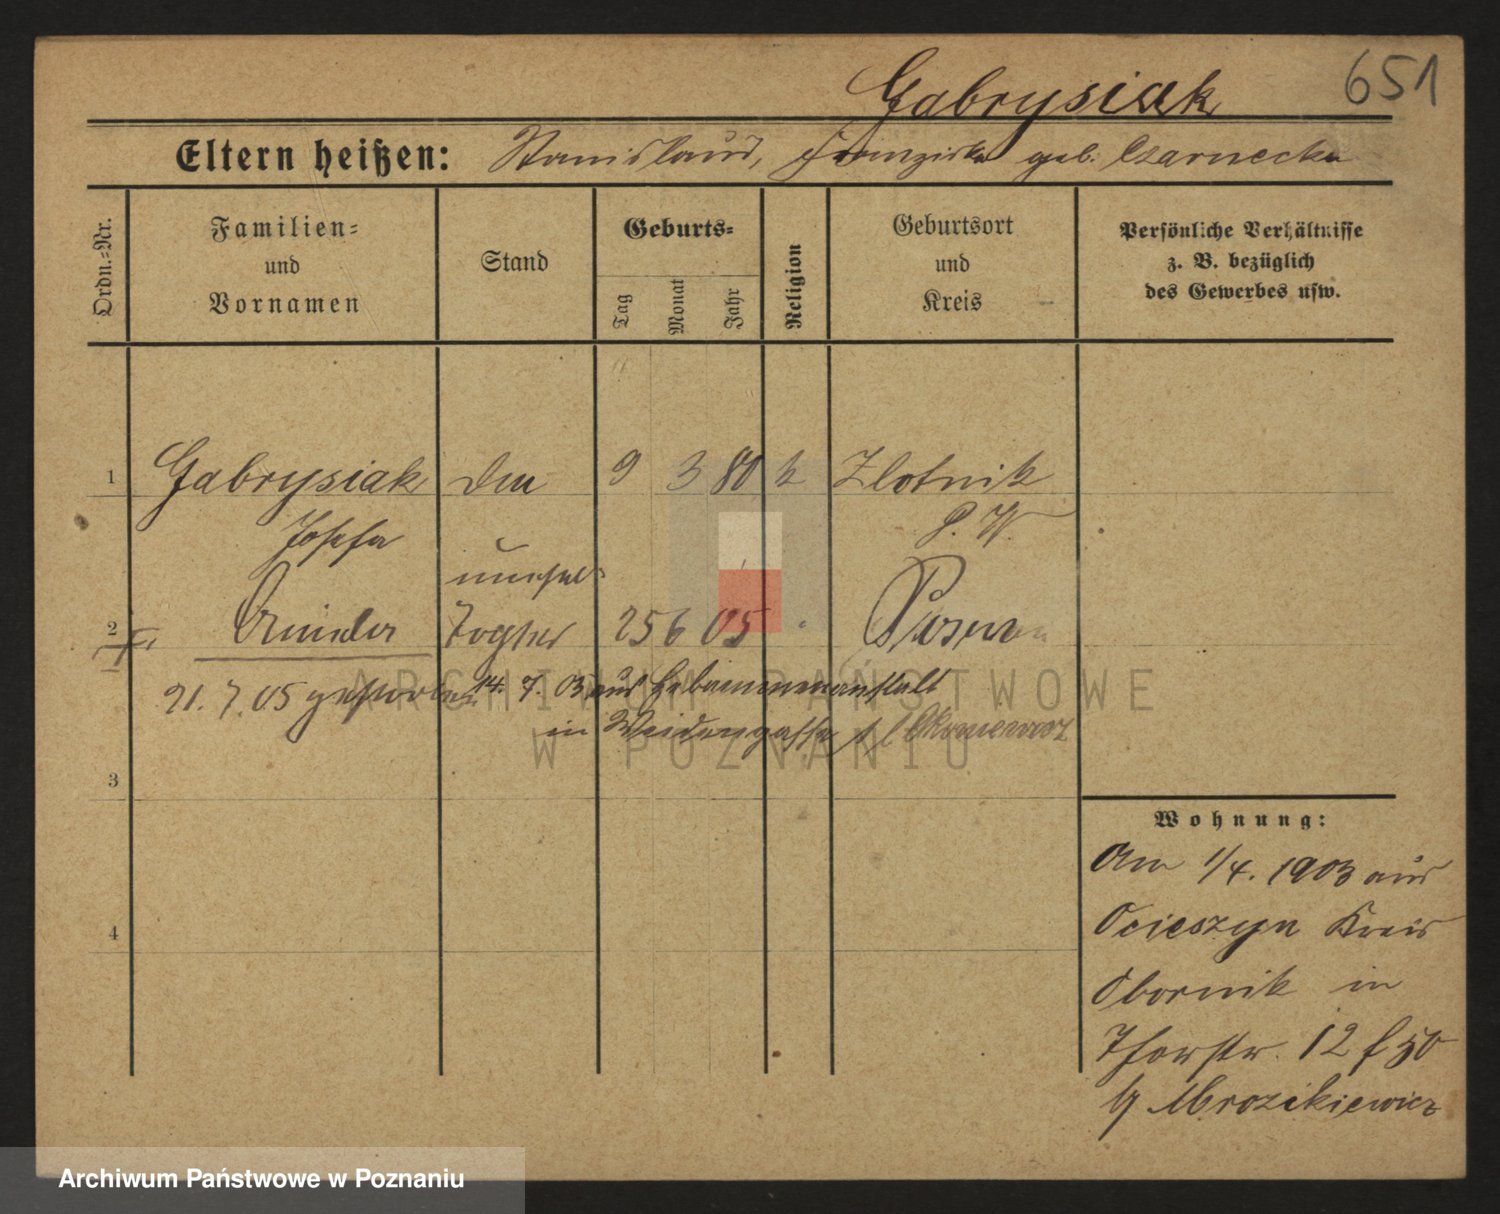 Gabrysiak 651
Eltern heißen: Stanislaus, Franziska geb. Czarnecka
Ordn.-Nr.
Familien-
und
Vornamen
Stand
Geburts-
Tag
Monat
Jahr
Religion
Geburtsort
und
Kreis
Persönliche Verhältnisse
z. B. bezüglich
des Gewerbes usw.
1 Gabrysiak 9 3 80 k Zlotnik
Josefa P. W.
unehel.
2 Tochter 25 6 05 Posen
21. 7. 05 gestorben 14. 7. 03 aus Hebammenanstalt
in Weidengasse
ARCHIWUM PAŃSTWOWE
W POZNANIU
3
4
Wohnung:
Am 1/4. 1903 aus
Ocieszyn Kreis
Obornik in
Thorstr. 12
b/ Mrozikiewicz
Archiwum Państwowe w Poznaniu